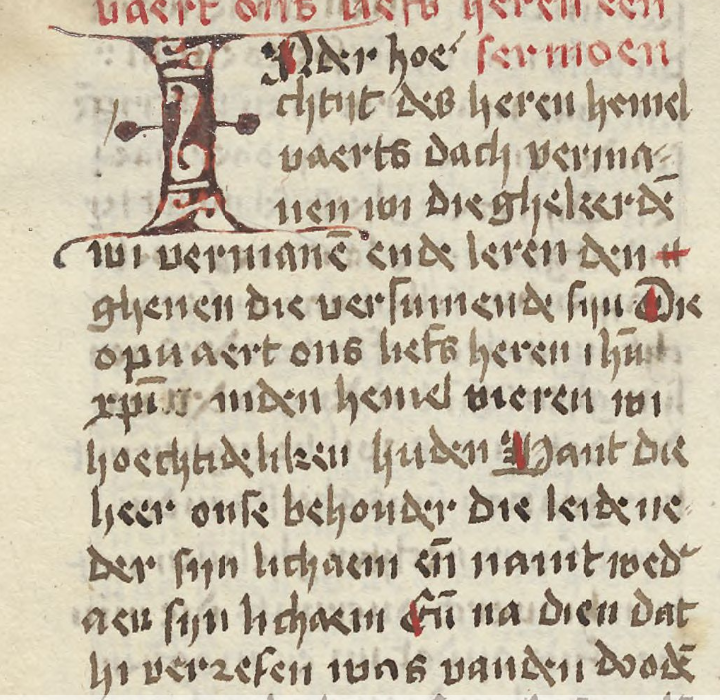 vaert ons liefs heren een
In der hoe sermoen
chtijt des heren hemel
vaerts dach verma-
nen wi die ghekeerdē
wi vermanē ende leren den
ghenen die versumende sijn Die
opvaert ons liefs heren ihū
xpī inden hemel vieren wi
hoechtideliken huden Want die
heer onse behouder die leide ne-
der sijn lichaem eñ namt wed'
aen sijn lichaem Eñ na dien dat
hi verresen was vanden dodē